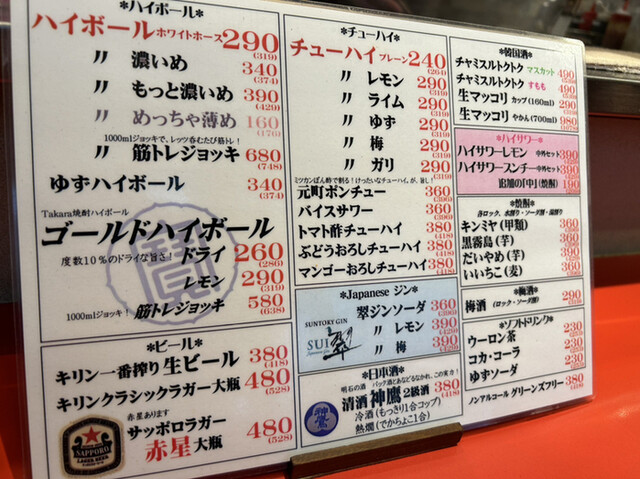 *ハイボール*
ハイボール ホワイトホース 290
(319)
〃 濃いめ 340
(374)
〃 もっと濃いめ 390
(429)
〃 めっちゃ薄め 160
(176)
1000mlジョッキで、レッツ呑むたび筋トレ!
〃 筋トレジョッキ 680
(748)
ゆずハイボール 340
(374)
Takara焼酎ハイボール
ゴールドハイボール
度数10%のドライな旨さ! ドライ 260
(286)
レモン 290
(319)
1000mlジョッキ! 筋トレジョッキ 580
(638)
*ビール*
キリン一番搾り 生ビール 380
(418)
キリンクラシックラガー大瓶 480
(528)
赤星あります
サッポロラガー
赤星 大瓶 480
(528)
SAPPORO
LAGER BEER
*チューハイ*
チューハイ プレーン 240
(264)
〃 レモン 290
(319)
〃 ライム 290
(319)
〃 ゆず 290
(319)
〃 梅 290
(319)
〃 ガリ 290
(319)
ミツカンぽん酢で割る!けったいなチューハイが、旨し!
元町ポンチュー 360
(396)
バイスサワー 360
(396)
トマト酢チューハイ 380
(418)
ぶどうおろしチューハイ 380
(418)
マンゴーおろしチューハイ 380
(418)
*Japanese ジン*
SUNTORY GIN
SUI 翠
翠ジンソーダ 360
(396)
〃 レモン 390
(429)
〃 梅 390
(429)
*日本酒*
明石の酒 パック酒とあなどるなかれ、この実力!
清酒 神鷹 2級酒 380
(418)
冷酒(もっきり1合コップ)
熱燗(でかちょこ1合)
*韓国酒*
チャミスルトクトク マスカット 490
(539)
チャミスルトクトク すもも 490
(539)
生マッコリ カップ(160ml) 290
(319)
生マッコリ やかん(700ml) 980
(1078)
*ハイサワー*
ハイサワーレモン 中外セット 390
(429)
ハイサワースンチー 中外セット 390
(429)
追加の「中」(焼酎) 190
*焼酎*
各ロック、水割り・ソーダ割・湯割り
キンミヤ(甲類) 360
黒霧島(芋) 360
だいやめ(芋) 390
いいちこ(麦) 360
*梅酒*
梅酒 (ロック・ソーダ割) 290
(319)
*ソフトドリンク*
ウーロン茶 230
(253)
コカ・コーラ 230
(253)
ゆずソーダ 230
(253)
ノンアルコール グリーンズフリー 380
(418)